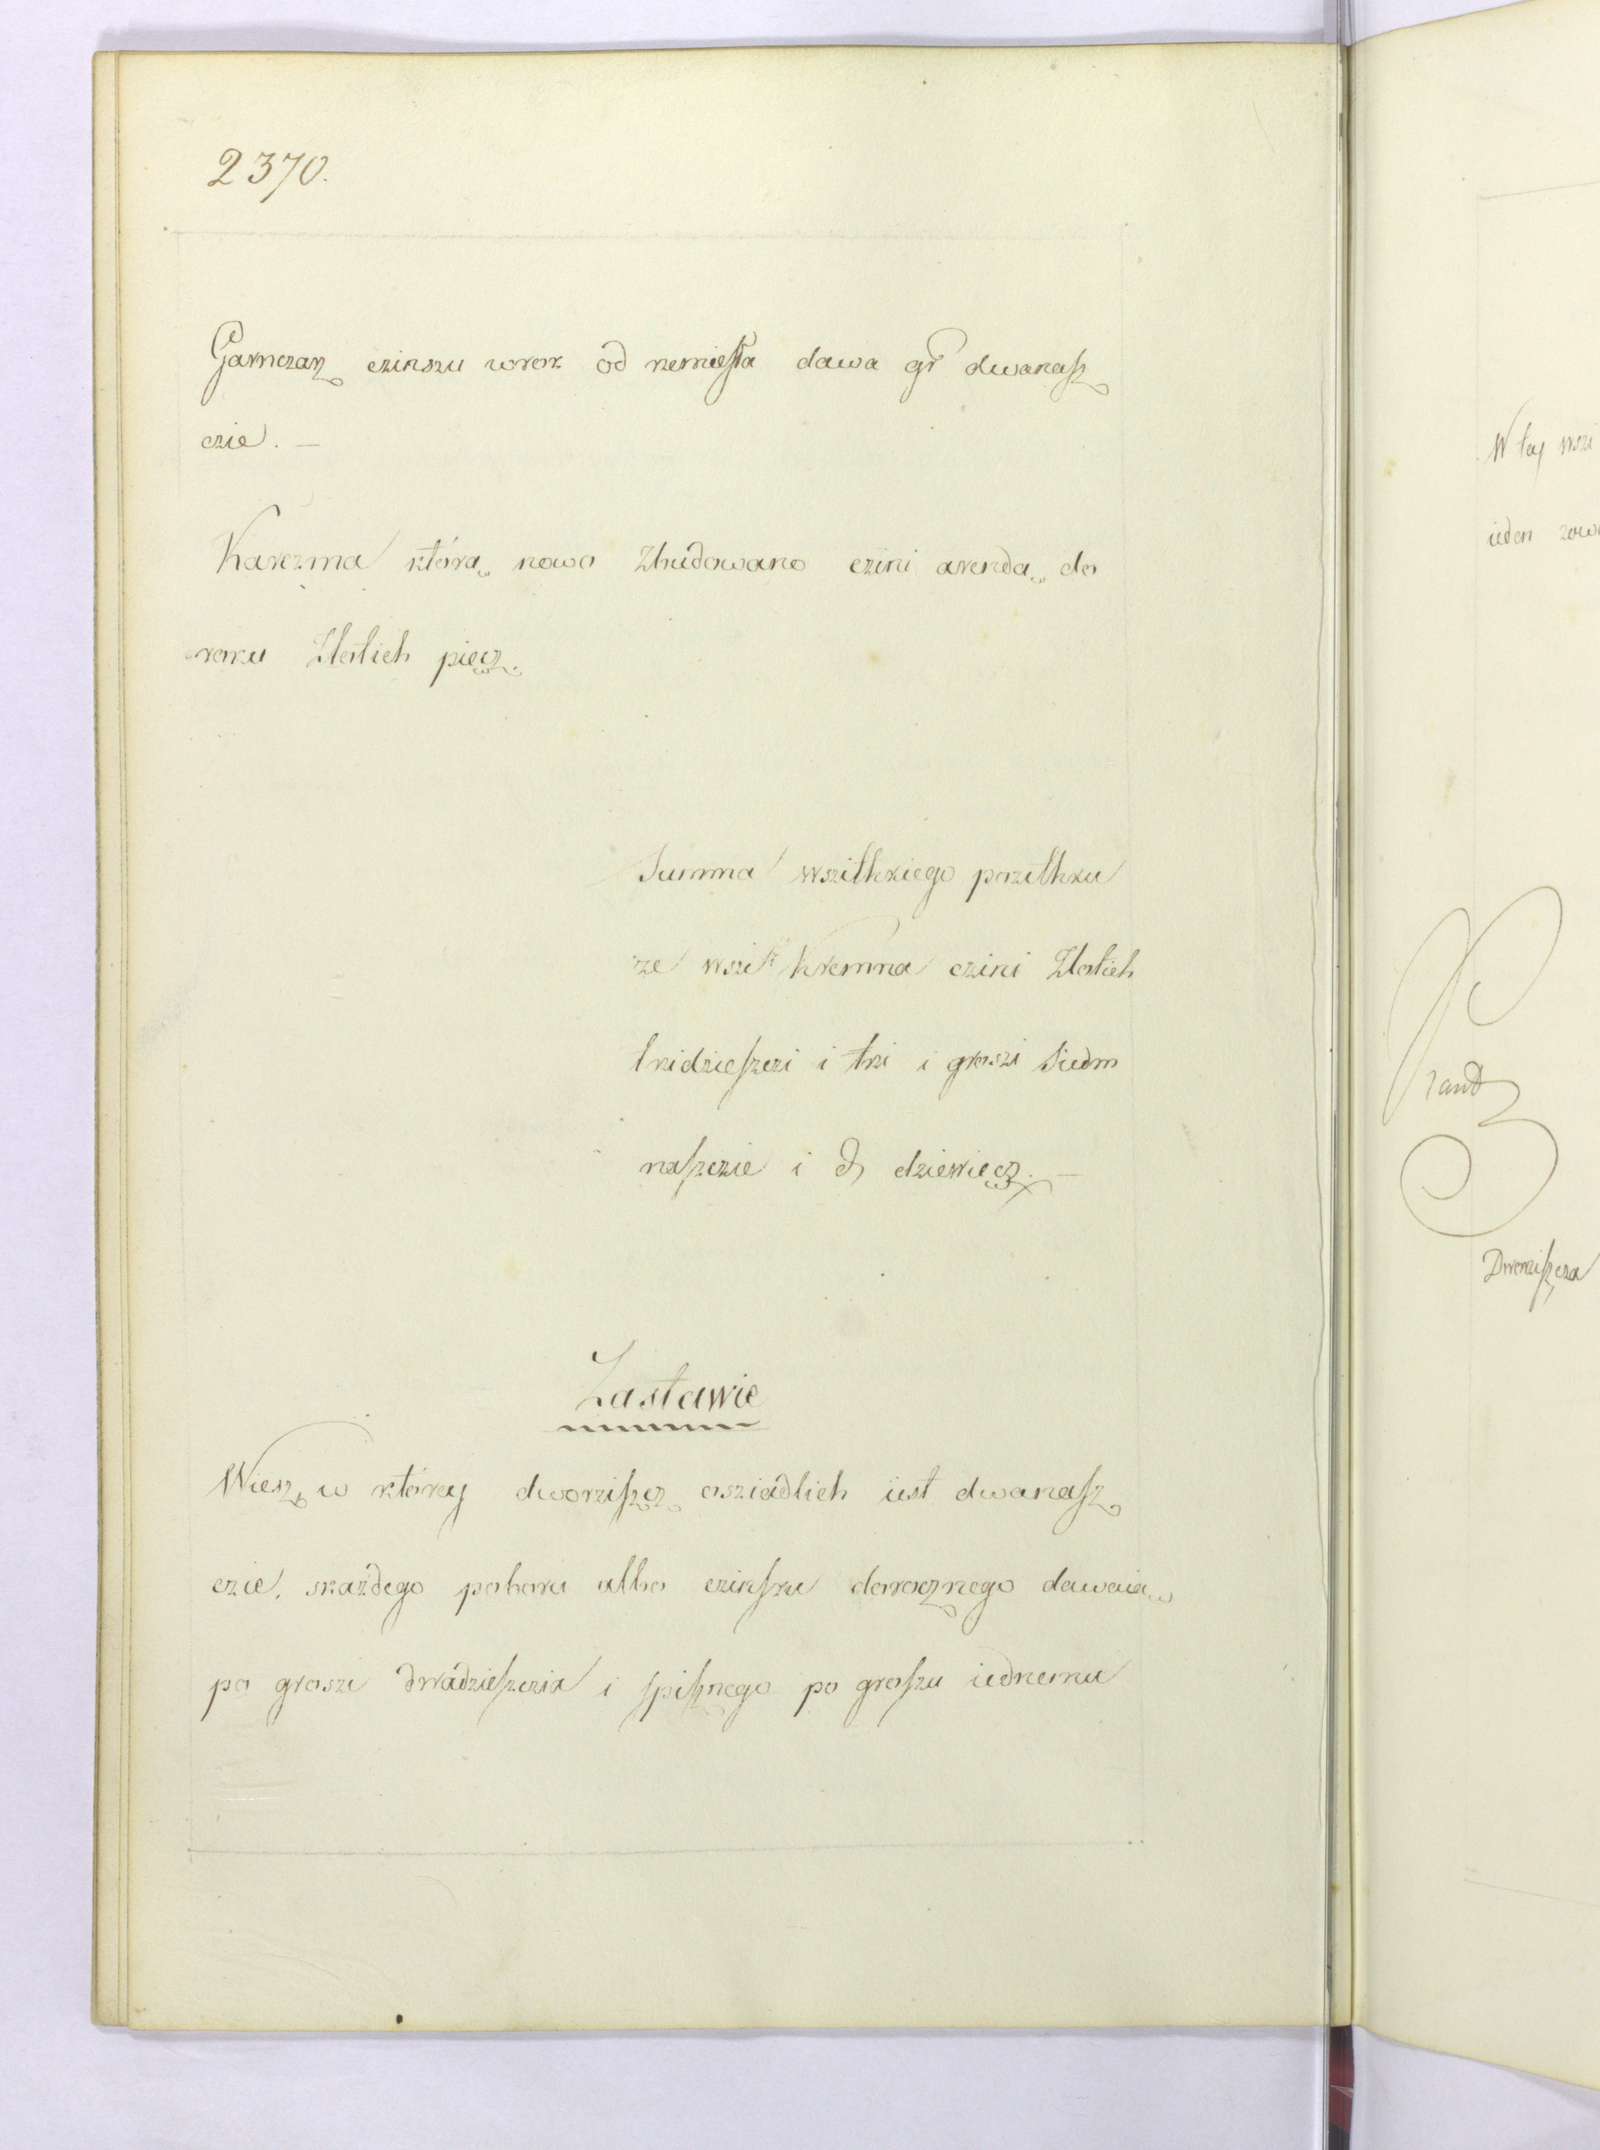 2370.
Garnczarz czinszu wrok od rzemiesla dawa gr dwanasz
czie. —
Karczma którą nowo Zbudowano czini arendą do
roku Zlotich pięcz.
Summa wszitkiego pozitkku
ze wszi Kremna czini Zlotich
trzidzieszczi i trzi i groszi Siedm
naszczie i d dziewięcz. —
Zastawie
Wiesz w którey dworziszcz osziadlich iest dwanasz
czie. skażdego poboru albo czinszu dorocznego dawaią
po groszi dwadzieszczia i spisznego po groszu iednemu
W tey wszi
ieden
Dworziszcza